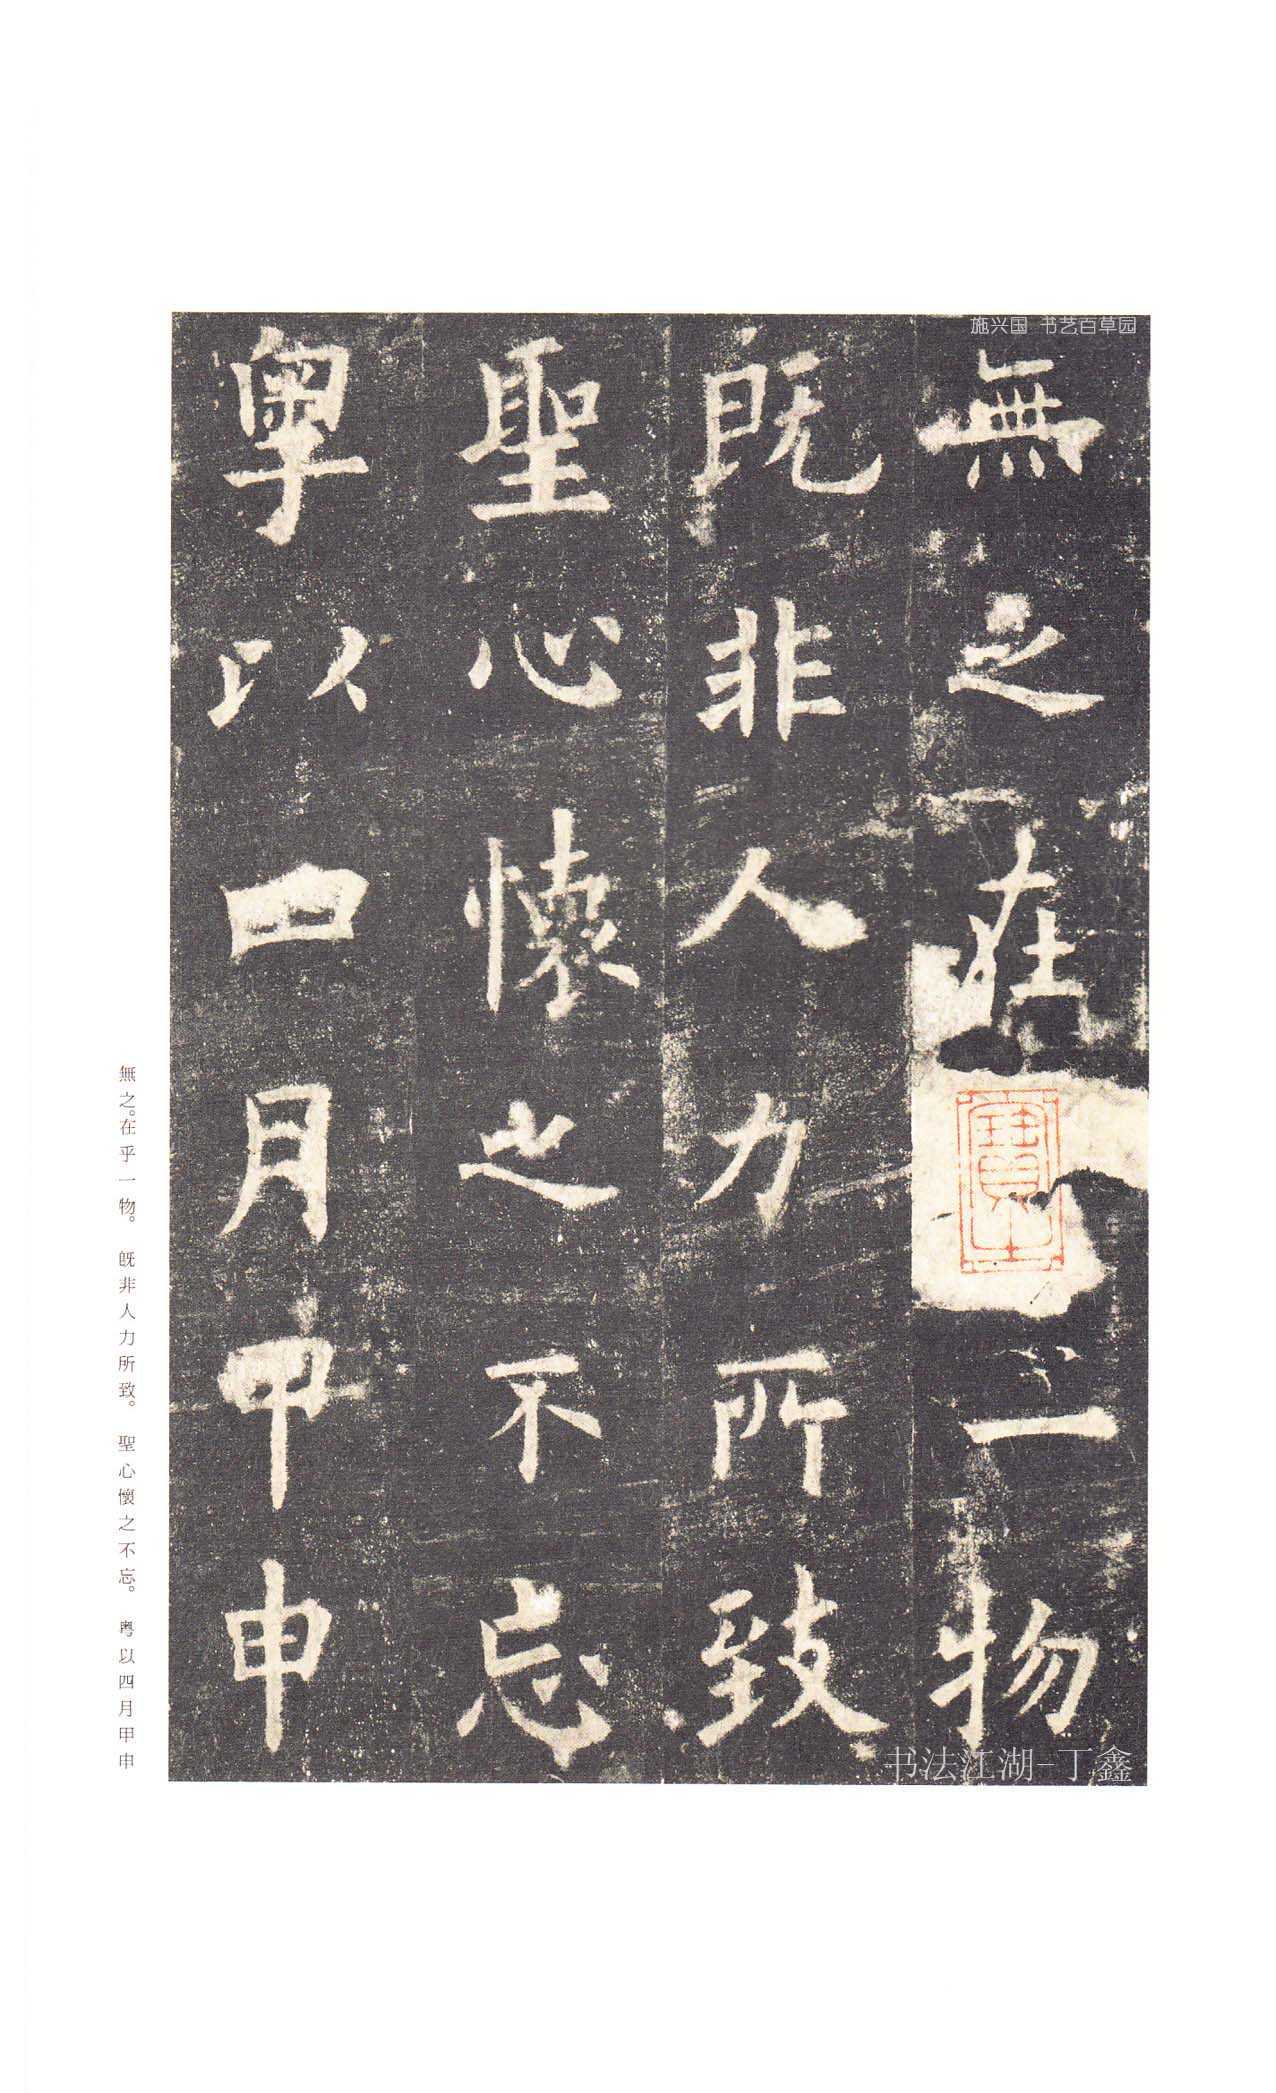 施兴国 书艺百草园
無之在一物
既非人力所致
聖心懷之不忘
粤以四月甲申
书法江湖-丁鑫
無之。在乎一物。 既非人力所致。 聖心懷之不忘。 粤以四月甲申